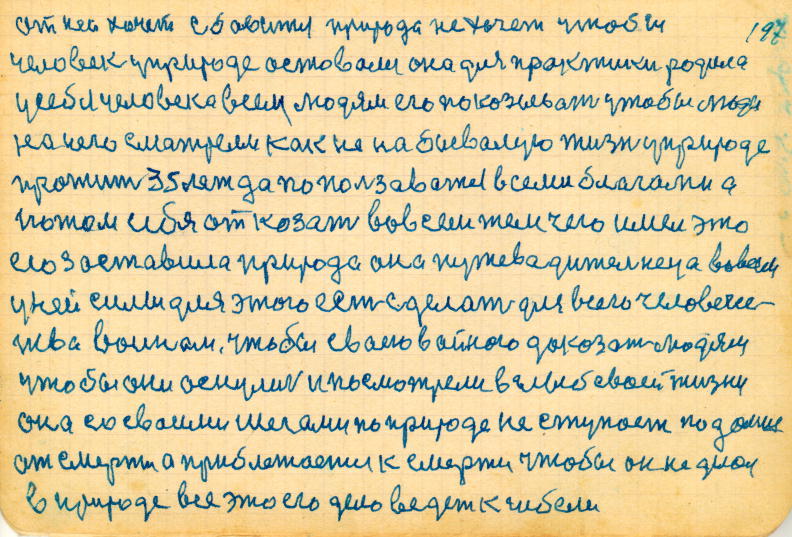 от ней хочет сбавити природа не хочет чтобы 197
человек у природе оставали она для практики родила
у себя человека всем людям его показыват чтобы люди
на него сматрели как не на бывалую жизн у природе
прожит 35 лет да поползаватя всеми благами а
потом себя отказат во всем тем чего имел это
его заставила природа она путевадителница во всем
у ней силы для этого ест сделат для всего человечес-
тва воином, чтобы своею войною доказат людям
чтобы они оснулис и посмотрели в глыб своей жизни
она со своими шегами по природе не ступает подалше
от смерти а приближается к смерти чтобы он не
в природе все это его дело ведет к гибели